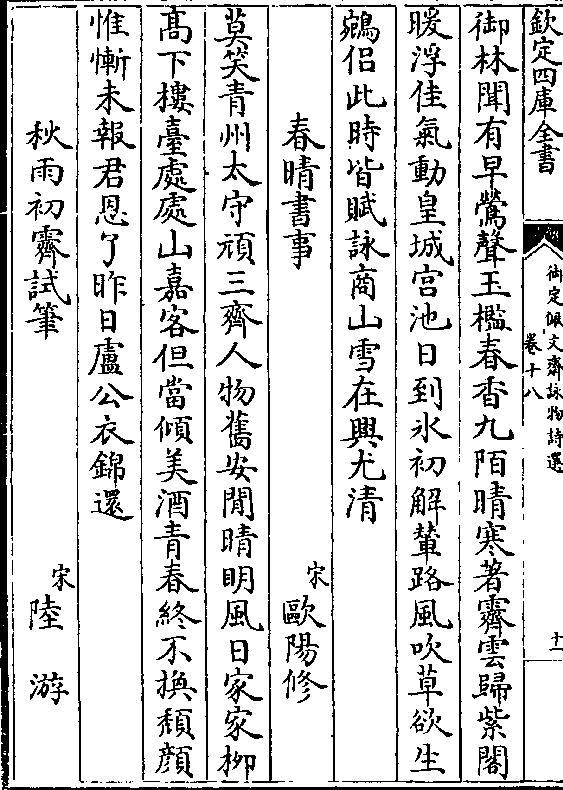 欽定四庫全書
御定佩文齋詠物詩選
卷十八
十一
御林聞有早鶯聲玉檻春香九陌晴寒著霽雲歸紫閣
暖浮佳氣動皇城宫池日到氷初解輦路風吹草欲生
鵷侣此時皆賦詠商山雪在興尤清
春晴書事
宋 歐陽修
莫笑青州太守頑三齊人物舊安閒晴明風日家家柳
髙下樓臺處處山嘉客但當傾美酒青春終不換頽顔
惟慚未報君恩了昨日盧公衣錦還
秋雨初霽試筆
宋 陸游